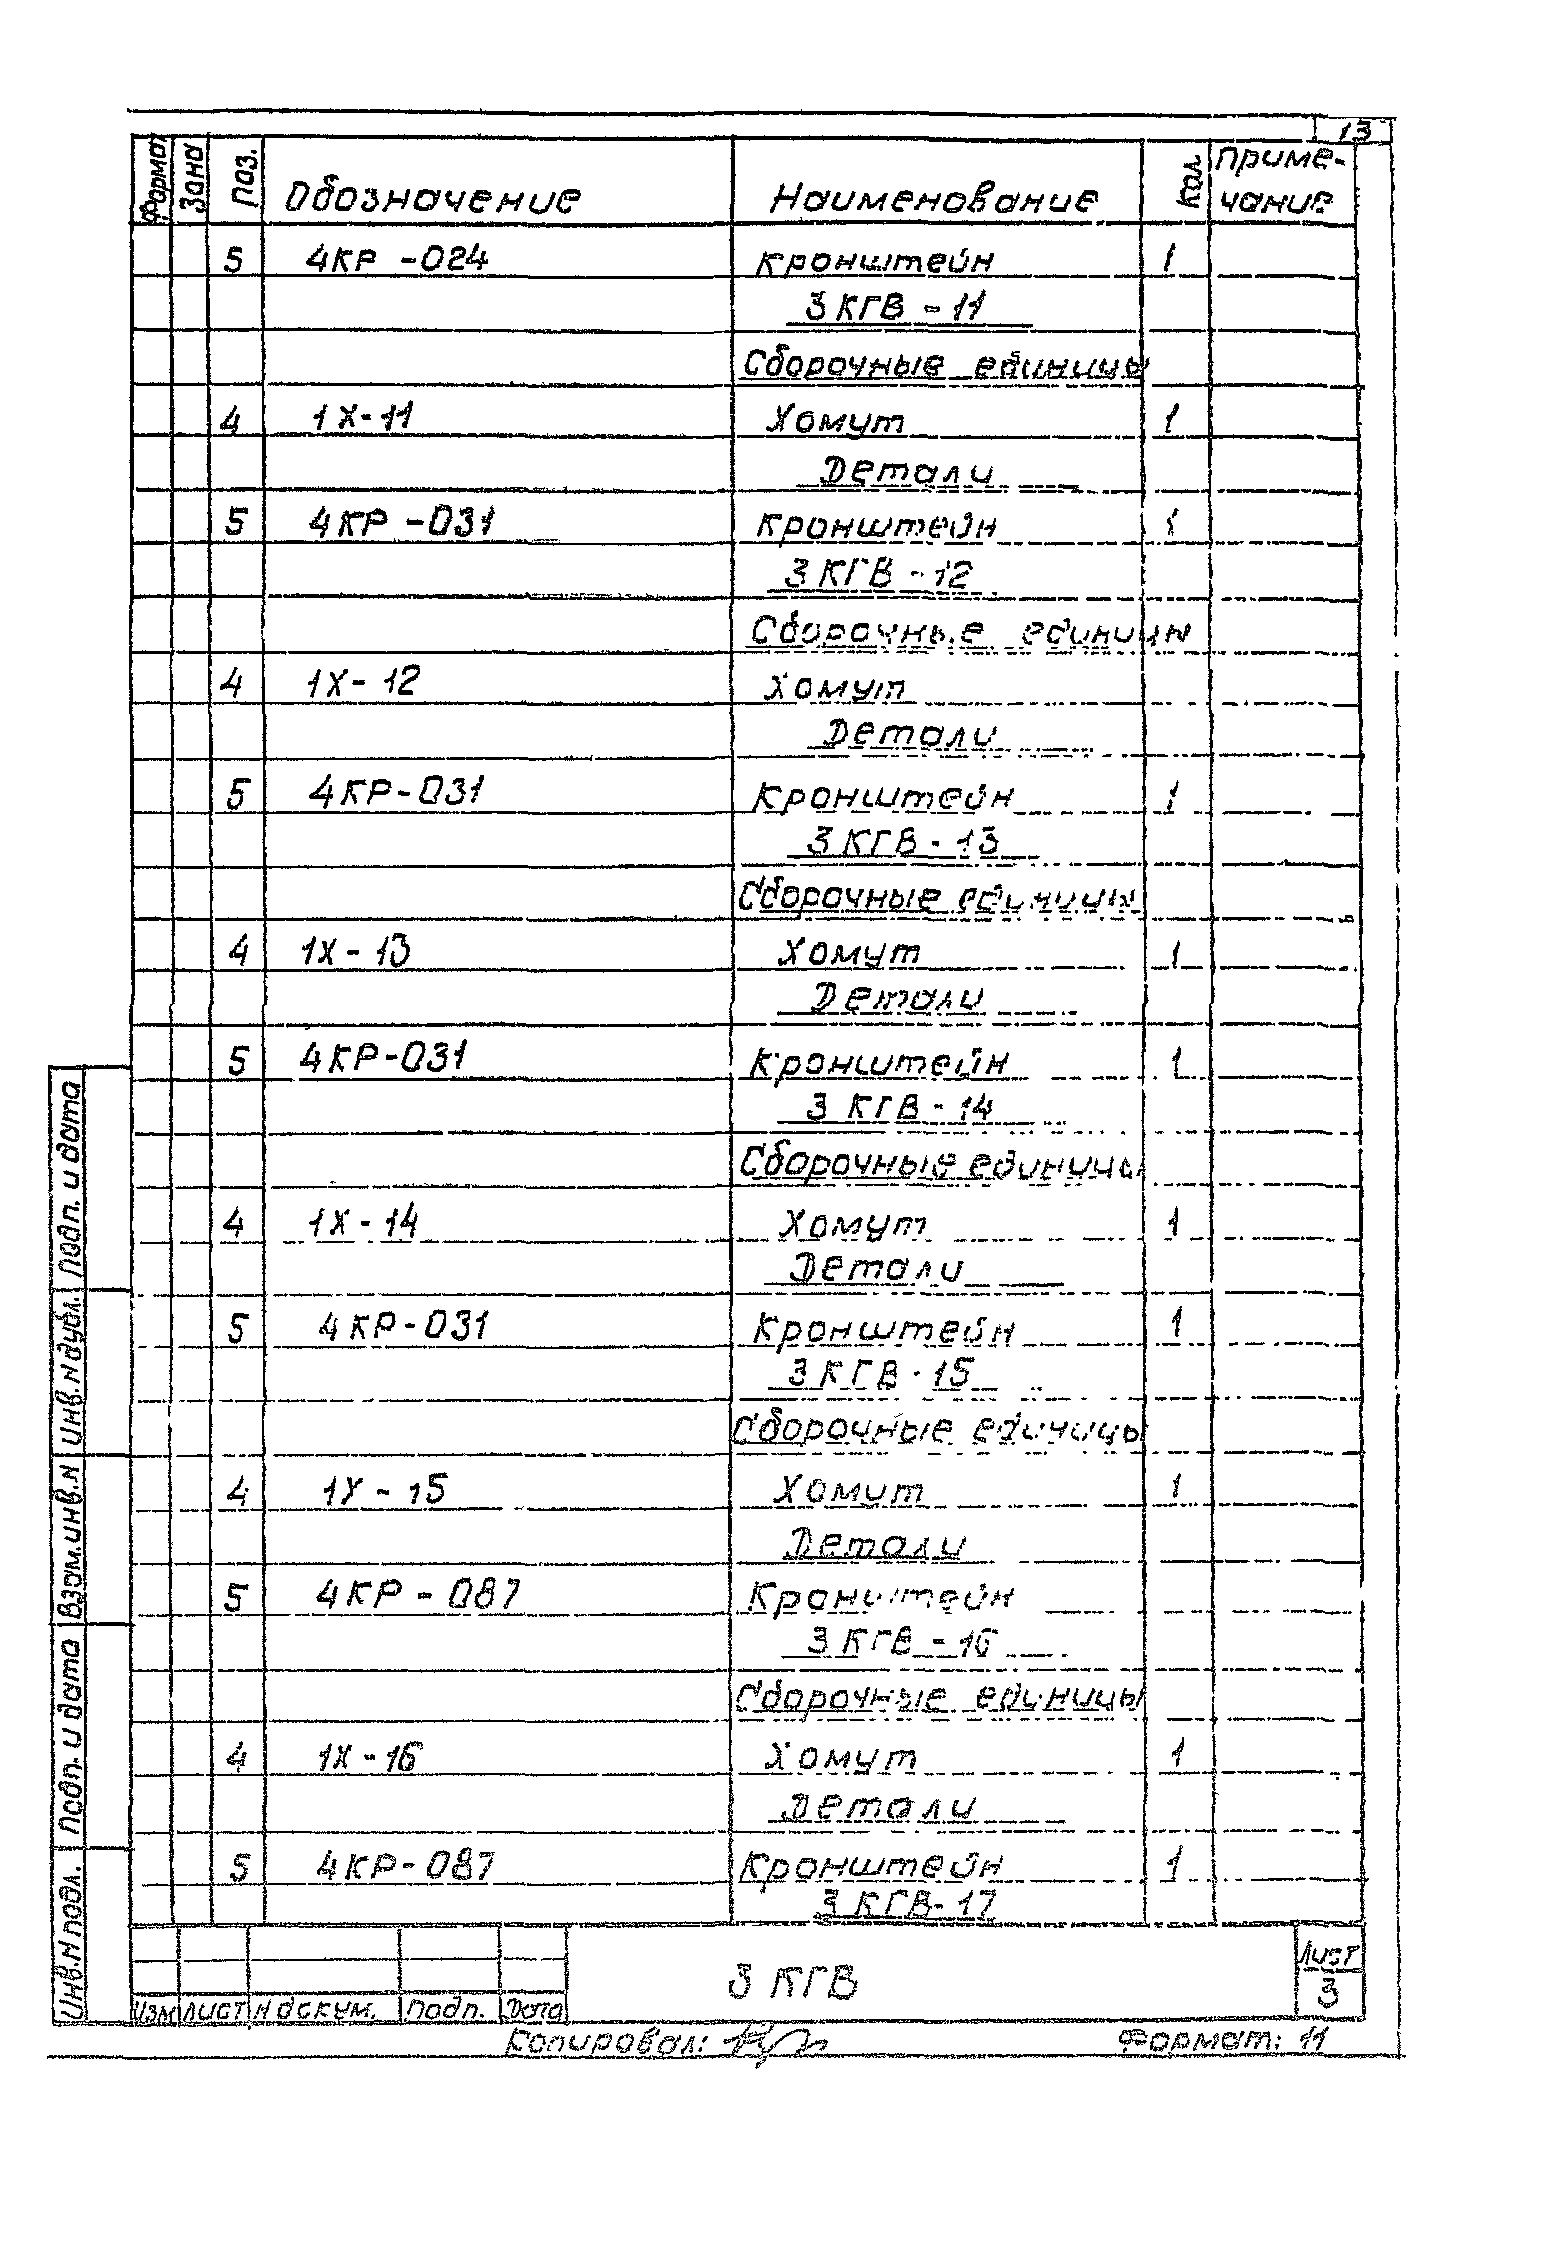 13
Формат Зона Поз. Обозначение Наименование Кол. Приме-
чание
5 4КР-024 Кронштейн 1
3КГВ-11
Сборочные единицы
4 1Х-11 Хомут 1
Детали
5 4КР-031 Кронштейн 1
3КГВ-12
Сборочные единицы
4 1Х-12 Хомут
Детали
5 4КР-031 Кронштейн 1
3КГВ-13
Сборочные единицы
4 1Х-13 Хомут 1
Детали
5 4КР-031 Кронштейн 1
3КГВ-14
Сборочные единицы
4 1Х-14 Хомут 1
Детали
5 4КР-031 Кронштейн 1
3КГВ-15
Сборочные единицы
4 1Х-15 Хомут 1
Детали
5 4КР-087 Кронштейн
3КГВ-16
Сборочные единицы
4 1Х-16 Хомут 1
Детали
5 4КР-087 Кронштейн 1
3КГВ-17
Инв.N подл. Подп. и дата Взам.инв.N Инв.N дубл. Подп. и дата
3 КГВ
Лист
3
Изм Лист N докум. Подп. Дата
Копировал: Формат: 11